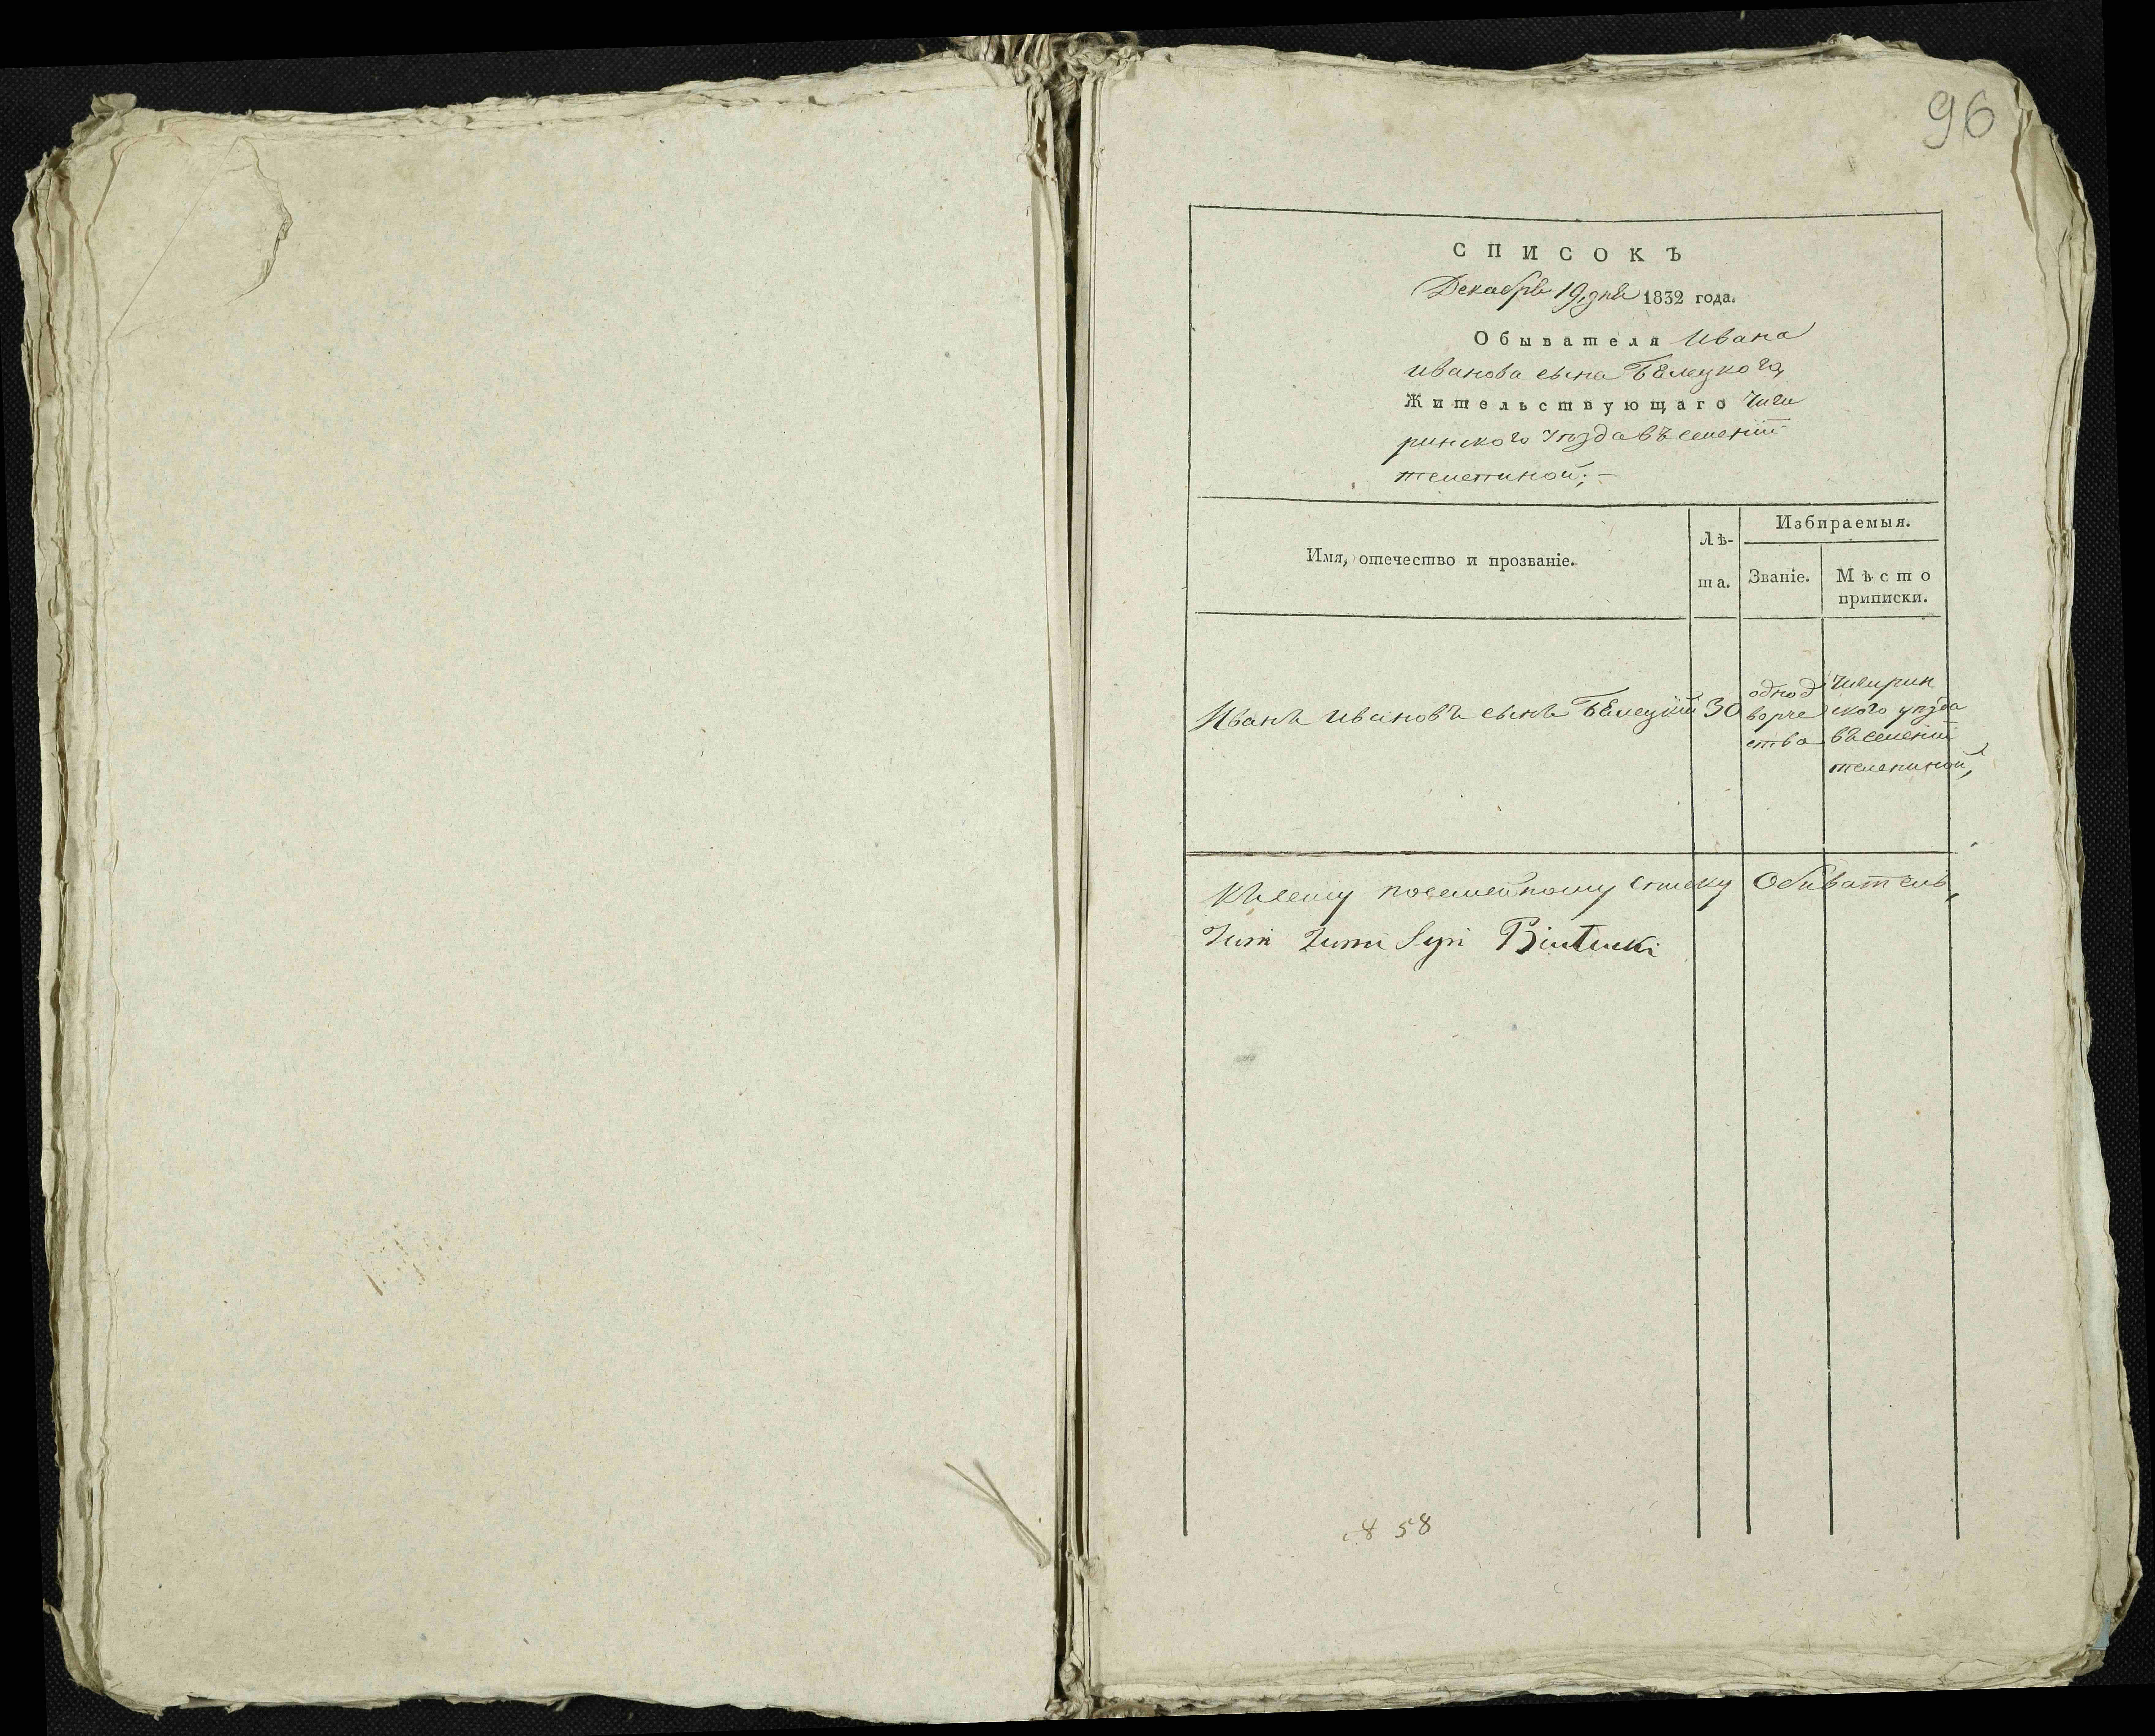 96
СПИСОКЪ
Декабря 19 дня 1832 года.
Обывателя Ивана
Иванова сына Белецкого,
Жительствующаго Чиги
ринского уѣзда въ селеніи
телепиной;-
Имя, отечество и прозваніе.
Лѣ-
та.
Избираемыя.
Званіе.
Мѣсто
приписки.
Иванъ Ивановъ сынъ Белецкій
30
однод
ворче
ства
Чигирин
ского уѣзда
въ селеніи
телепиной,
Къ сему посемейному списку Обыватель,
Syn
№ 58